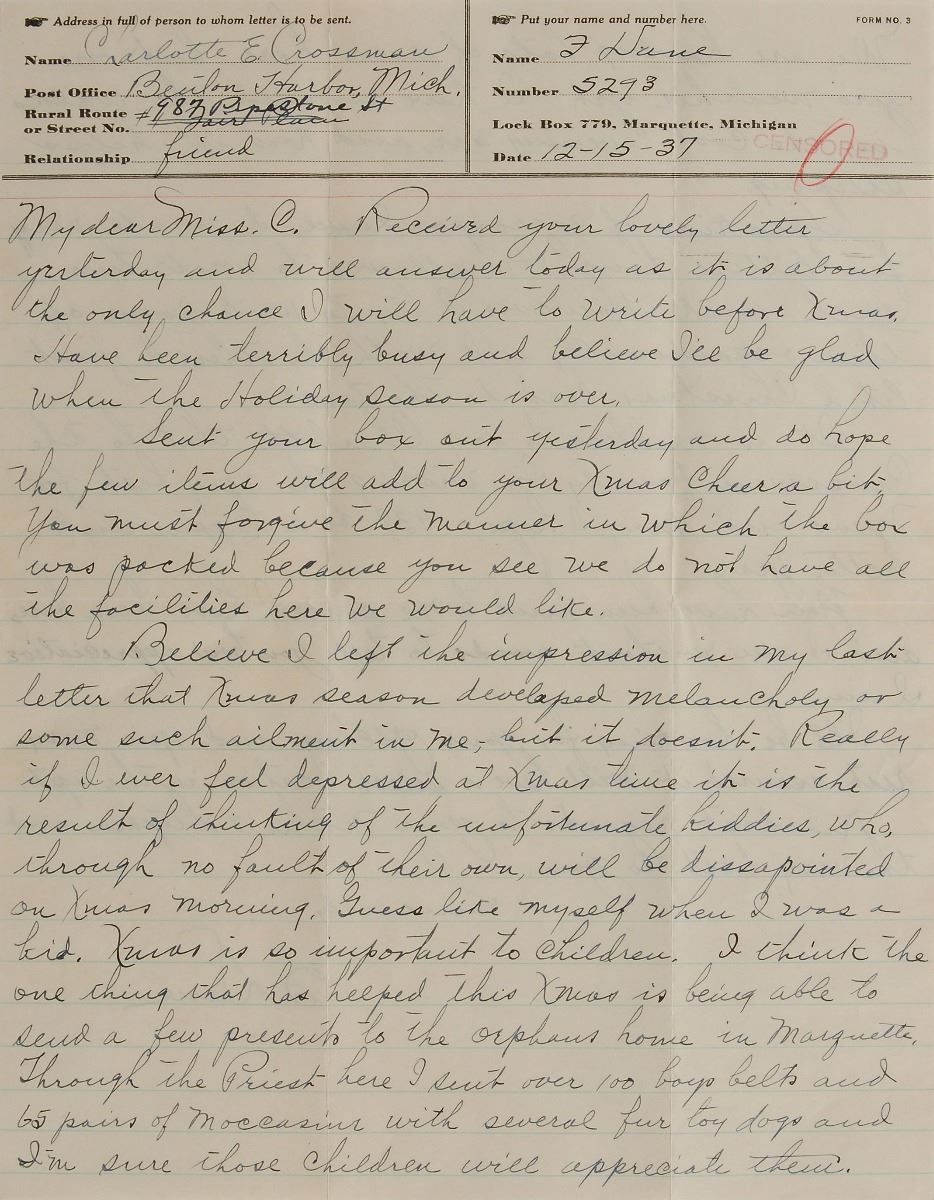 ☞ Address in full of person to whom letter is to be sent.
Name Carlotte E. Crossman
Post Office Benton Harbor, Mich.
Rural Route or Street No. #987 Pipestone St
Fair Plain
Relationship friend
☞ Put your name and number here.
FORM NO. 3
Name F Dane
Number 5293
Lock Box 779, Marquette, Michigan
Date 12-15-37
CENSORED
My dear Miss. C. Received your lovely letter
yesterday and will answer today as it is about
the only chance I will have to write before Xmas.
Have been terribly busy and believe I'll be glad
when the Holiday season is over.
Sent your box out yesterday and do hope
the few items will add to your Xmas Cheer a bit.
You must forgive the manner in which the box
was packed because you see we do not have all
the facilities here we would like.
Believe I left the impression in my last
letter that Xmas season developed melancholy or
some such ailment in me, but it doesn't. Really
if I ever feel depressed at Xmas time it is the
result of thinking of the unfortunate kiddies, who,
through no fault of their own, will be dissapointed
on Xmas morning. Guess like myself when I was a
kid. Xmas is so important to children. I think the
one thing that has helped this Xmas is being able to
send a few presents to the orphans home in Marquette.
Through the Priest here I sent over 100 boys belts and
65 pairs of Moccasins with several fur toy dogs and
I'm sure those children will appreciate them.